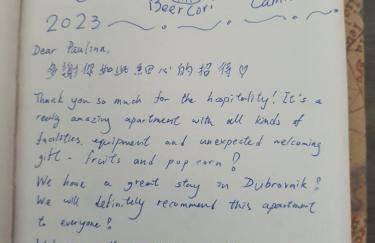 BeerCori
2023
Dear Paulina,
多謝你如此細心的招待♡
Thank you so much for the hapitality! It's a
realy amazing apartment with all kinds of
facilities, equipment and unexpected welcoming
gift - fruits and pop corn!
We have a great stay in Dubrovnik!
We will definitely recommend this apartment
to everyone!